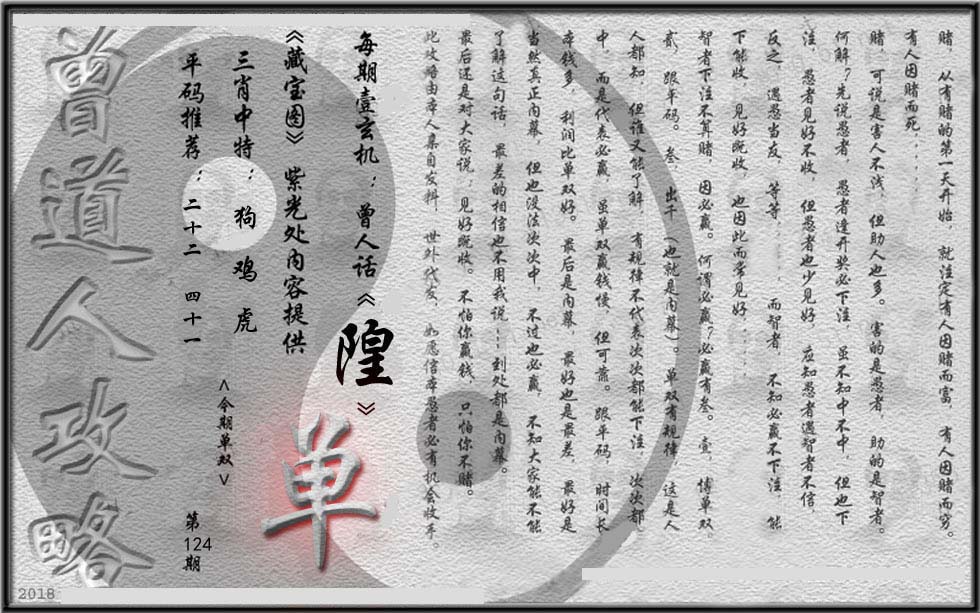 赌，从有赌的第一天开始，就注定有人因赌而富，有人因赌而穷。
有人因赌而死......
赌，可说是害人不浅，但助人也多。害的是愚者，助的是智者。
何解？先说愚者，愚者逢开奖必下注，虽不知中不中，但也下
注，愚者见好不收，但愚者也少见好，应知愚者遇智者不信，
反之，遇愁当友，等等......而智者，不知必赢不下注，能
下能收，见好既收，也因此而常见好......
智者下注不算赌，因必赢。何谓必赢？必赢有叁。壹，博单双，
贰，跟平码。叁，出千（也就是内幕）。单双有规律，这是人
人都知，但谁又能了解，有规律不代表次次都能下注，次次都
中，而是代表必赢，虽单双赢钱慢，但可靠。跟平码，时间长，
本钱多，利润比单双好。最后是内幕，最好也是最差，最好是
当然真正内幕，但也没法次次中，不过也必赢，不知大家能不能
了解这句话，最差的相信也不用我说...到处都是内幕。
最后还是对大家说：见好既收。不怕你赢钱，只怕你不赌。
此攻略由本人集自发料，世外代友，如愿信本愚者必有机会收手。
每期壹玄机：曾人话《隍》
《藏宝图》紫光处内容提供
三肖中特：狗 鸡 虎
平码推荐：二十二 四十一
<今期单双>
单
第124期
曾道人攻略
2018